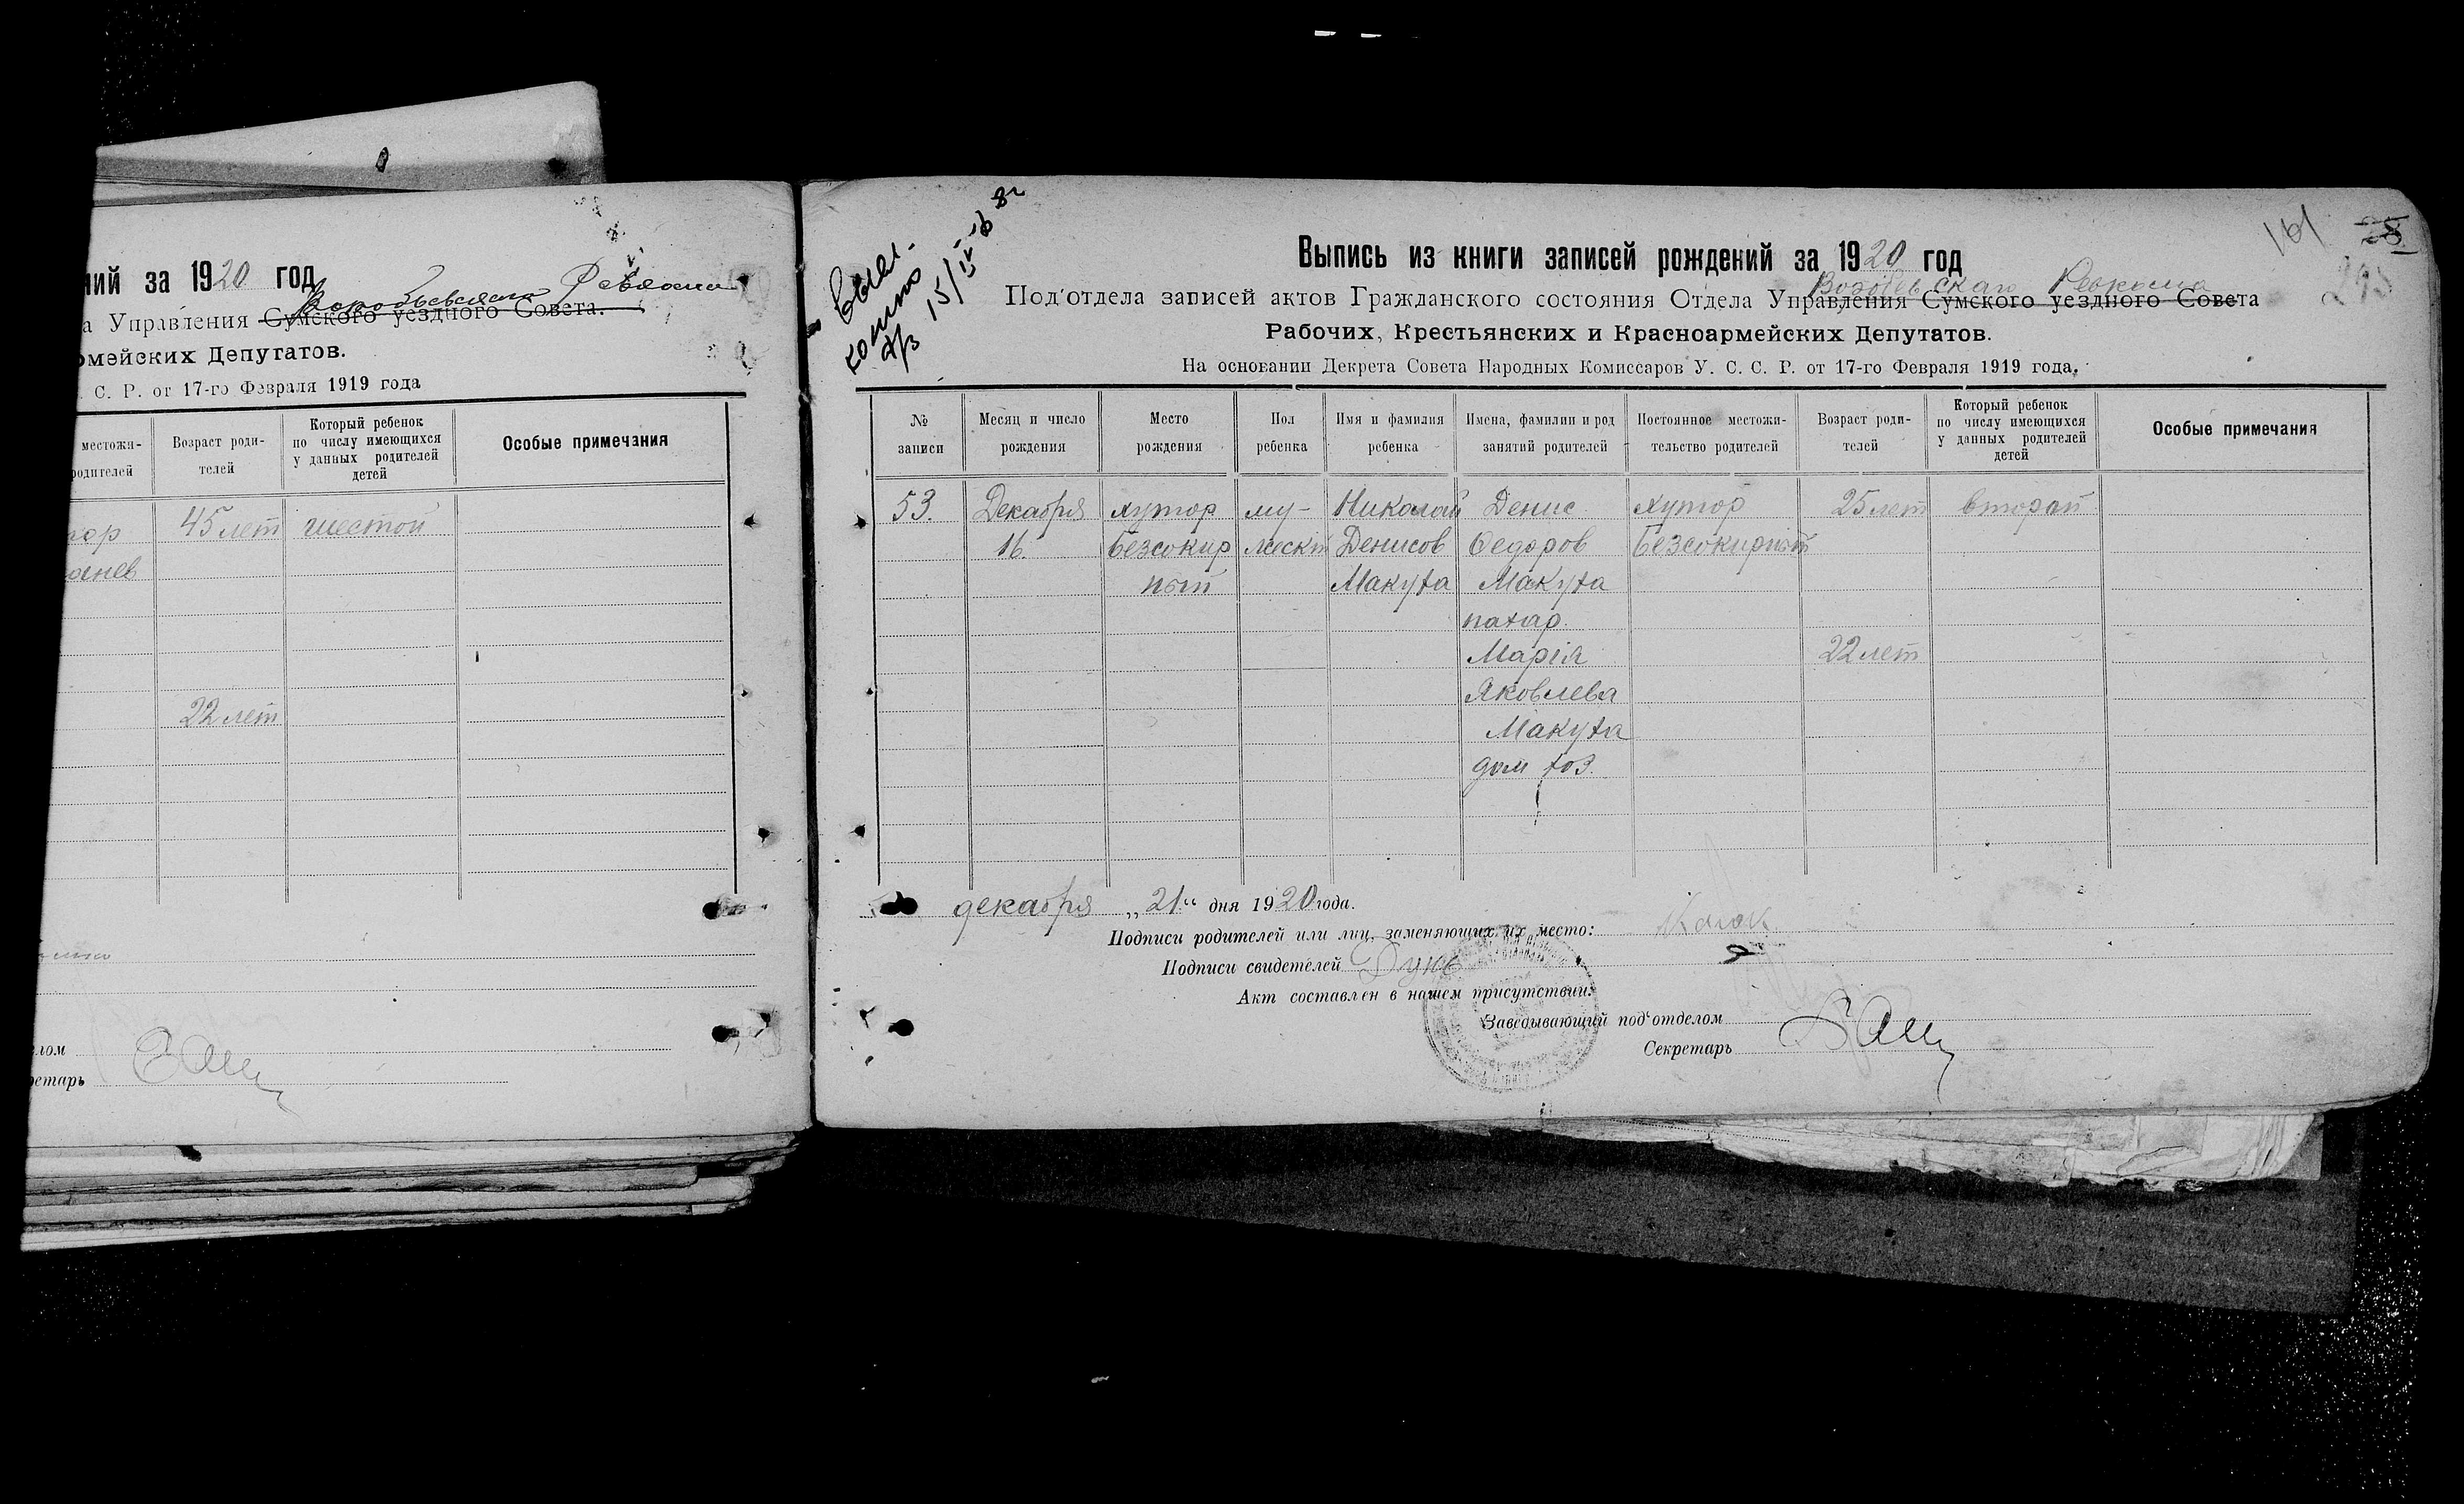 ний за 1920 год
Ревкома
а Управления Сумского уездного Совета.
омейских Депутатов.
. С. Р. от 17-го Февраля 1919 года
местожи-
родителей
Возраст роди-
телей
Который ребенок
по числу имеющихся
у данных родителей
детей
Особые примечания
45 лет шестой
22 лет
елом
ретарь
15/
161
28
Выпись из книги записей рождений за 1920 год
Ревкома
Под'отдела записей актов Гражданского состояния Отдела Управления Сумского уездного Совета
Рабочих, Крестьянских и Красноармейских Депутатов.
На основании Декрета Совета Народных Комиссаров У. С. С. Р. от 17-го Февраля 1919 года.
№
записи
Месяц и число
рождения
Место
рождения
Пол
ребенка
Имя и фамилия
ребенка
Имена, фамилии и род
занятий родителей
Постоянное местожи-
тельство родителей
Возраст роди-
телей
Который ребенок
по числу имеющихся
у данных родителей
детей
Особые примечания
53. Декабря хутор му- Николай Денис хутор 25 лет второй
16. Безсокир жеск Денисов Федоров Безсокирный
ный Макуха Макуха
пахар.
Марія 22 лет
Яковлева
Макуха
дом хоз.
декабря „21“ дня 1920 года.
Подписи родителей или лиц, заменяющих их место:
Подписи свидетелей
Акт составлен в нашем присутствии:
Заведывающий под'отделом
Секретарь